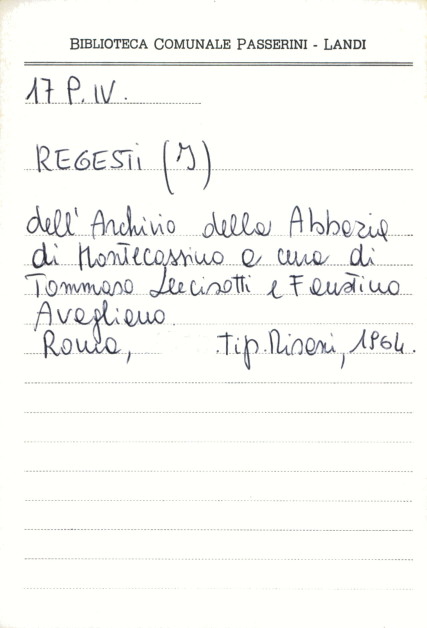 BIBLIOTECA COMUNALE PASSERINI - LANDI
17 P. IV.
REGESTI (I)
dell' Archivio della Abbazia
di Montecassino a cura di
Tommaso Leccisotti e Faustino
Avagliano
Roma, Tip. Miseni, 1964.